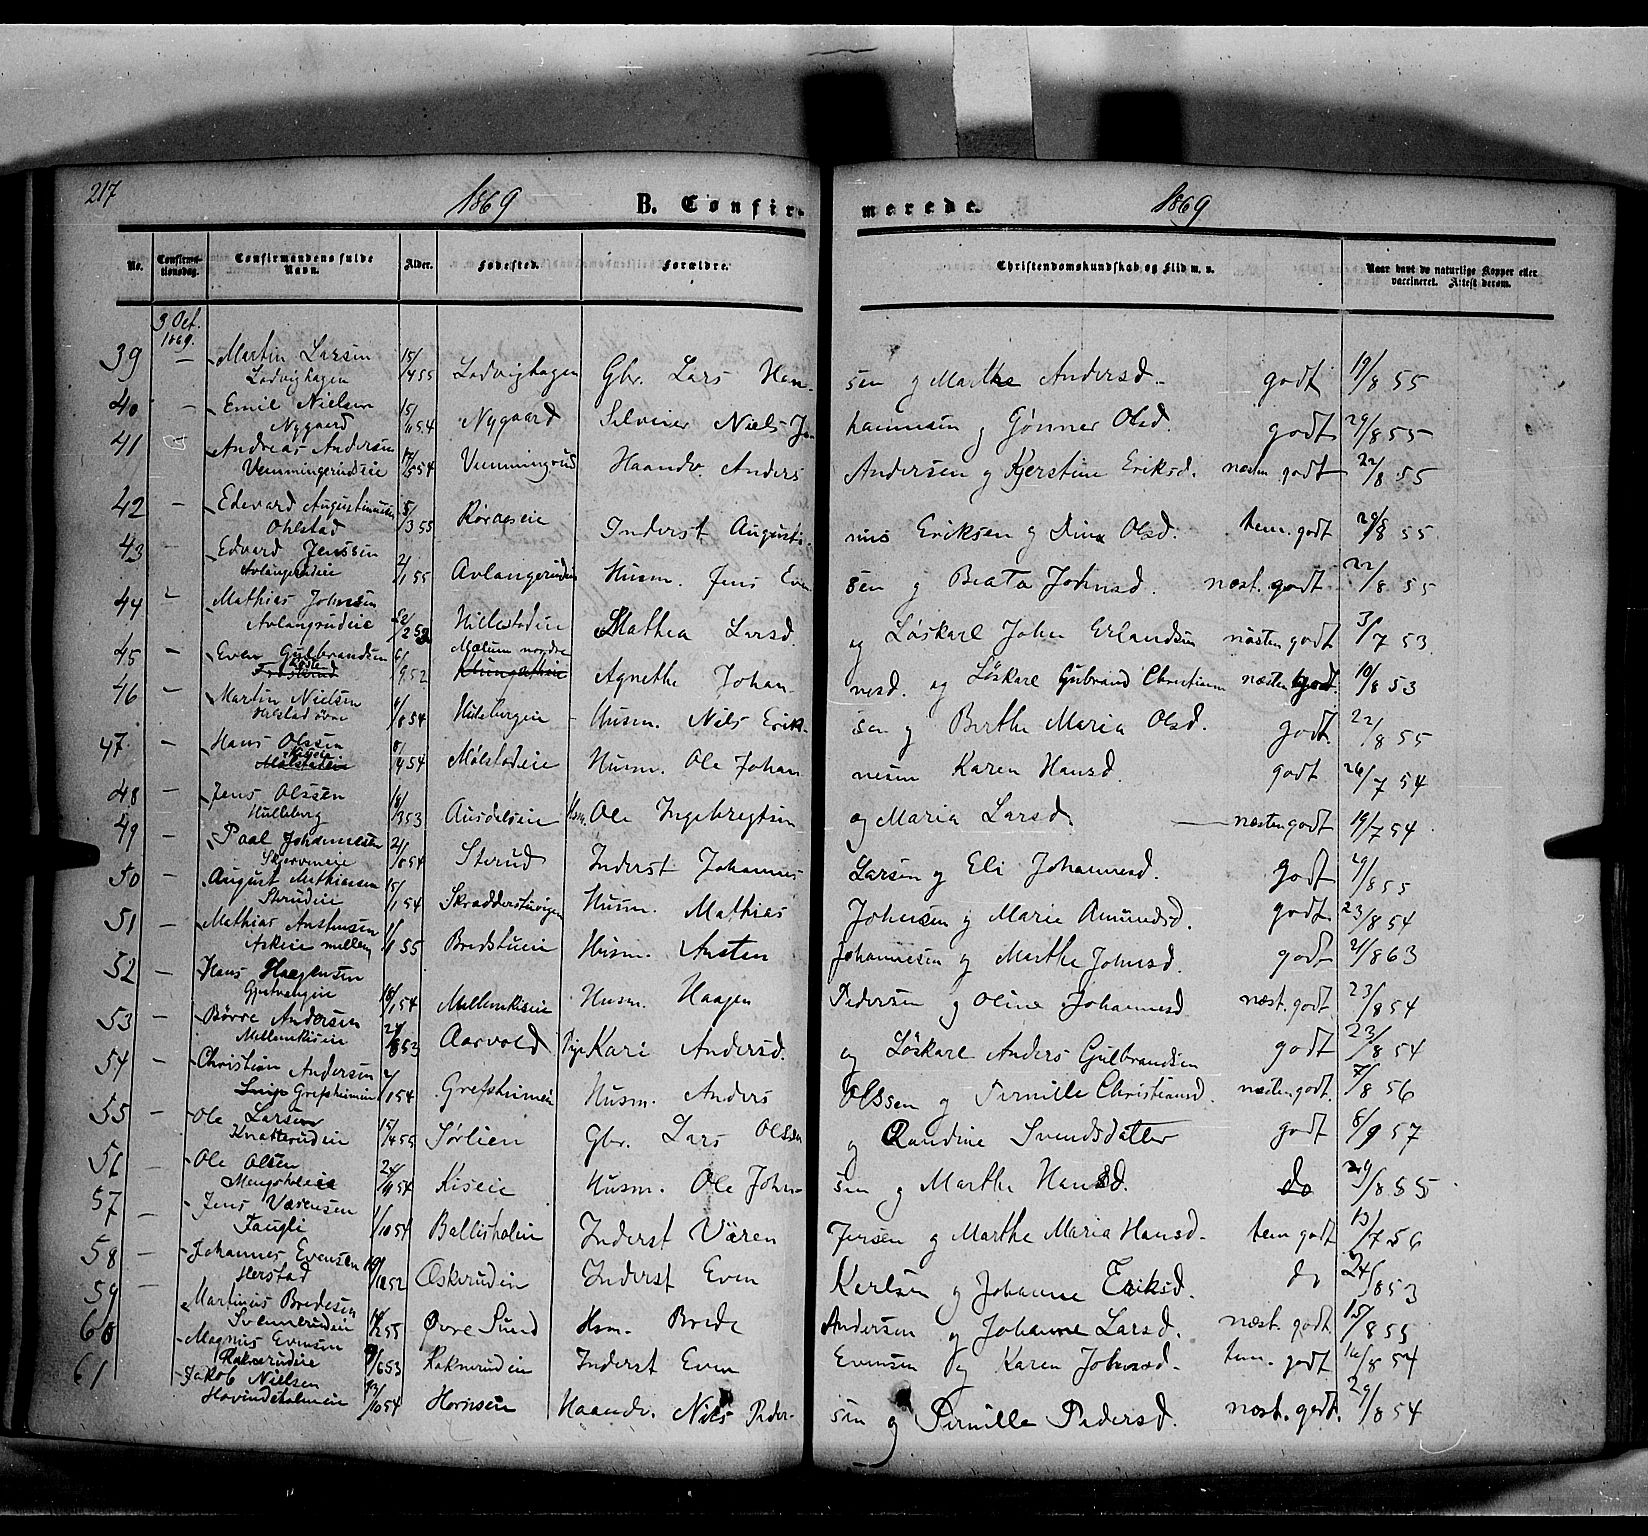 217
1869 B. Confirmerede. 1869
No. Confirmationsdag. Confirmandens fulde Navn. Alder. Fødested. Forældre. Christendomskundskab og Flid m. v. Naar havt de naturlige Kopper eller vaccineret. Attest derom.
3 Oct. 1869.
39 — Martin Larsen 15/4 55 Ladvighagen Gbr. Lars Han- sen og Marthe Andersd. godt 19/8 55
Ladvighagen
40 — Emil Nielsen 15/11 54 Nygaard Selveier Niels Jo hannesen og Gønner Olsd. godt 29/8 55
Nygaard
41 Andreas Andersen 17/5 54 Vemmingrud Haandv. Anders Andersen og Kjerstine Eriksd. næsten godt 22/8 55
Vemmingerudeie
42 — Edevard Augustinusen 5/3 55 Røraaseie Inderst Augusti- nus Eriksen og Dina Olsd. tem. godt 29/8 55
Ohlstad
43 — Edvard Jenssen 2/1 55 Avlangerudeie Husm. Jens Even sen og Beata Johnsd. næst. godt 22/8 55
Avlangerudeie
44 Mathias Johnsen Hillestadeie Mathea Larsd. og Løskarl John Erlandsen næsten godt 3/7 53
Avlangrudeie
45 — Even Gulbrandsen 6/9 52 Mælum nordre Agnethe Johan- nesd. og Løskarl Gubrand Christiansen næsten godt. 19/8 53
46 — Martin Nielsen 4/8 54 Husm. Niels Erik- sen og Berthe Maria Olsd. godt. 22/8 55
Halstad øvre
47 — Hans Olssen 8/4 54 Mølstadeie Husm. Ole Johan nesen Karen Hansd. godt 26/7 54
Mølstadeie
48 — Jens Olssen 18/3 53 Ausdalseie Hsm. Ole Ingebregtsen og Maria Larsd. — næsten godt 19/7 54
Hulleberg
49 — Paal Johannessen 21/8 54 Sterud Inderst Johannes Larsen og Eli Johannesd. godt 4/8 55
50 — August Mathiassen 15/1 54 Skrædderstuvigen Husm. Mathias Johnsen og Marie Amundsd. godt. 23/8 54
Sterudeie
51 — Mathias Anstensen 1/1 55 Bredstueie Husm. Ansten Johannesen og Marthe Johnsd. godt 21/8 63
Askeie mellem
52 — Hans Haagensen 16/1 54 Mellemkiseie Husm. Haagen Pedersen og Oline Johannesd. næst. godt 23/8 54
53 — Børre Andersen 24/8 53 Aarvold Pige Kari Andersd. og Løskarl Anders Gulbrandsen godt 23/8 54
Mellemkiseie
54 — Christian Andersen 2/1 54 Grefsheimeie Husm. Anders Olssen og Pernille Christiansd. næsten godt. 7/8 56
Grefsheimeie
55 — Ole Larsen 15/4 55 Sørlien Gbr. Lars Olssen og Randine Svendsdatter godt 8/9 57
Knatterudeie
56 — Ole Olsen 24/11 54 Kiseie Husm. Ole John- sen og Marthe Hansd. do 29/8 55
57 — Jens Værensen 1/10 54 Ballisholm Inderst Vären Jensen og Marthe Maria Hansd. tem godt 13/7 56
Taugli
58 — Johannes Evensen 19/10 52 Oskerudeie Inderst Even Karlsen og Johanne Eriksd. do 24/8 53
Herstad
59 — Martinus Bredesen 14/2 55 Øvre Sund Hsm. Brede Andersen og Johanne Larsd. næst. godt 15/8 55
Svennerudeie
60 Magnus Evensen 9/6 53 Raknerudeie Inderst Even Evensen og Karen Johnsd. tem. godt 16/8 54
Raknerudeie
61 Jakob Nielsen 23/10 54 Hornseie Haandv. Niels Peder- sen og Pernille Pedersd. næst. godt. 29/8 54
Hovindsholmeie